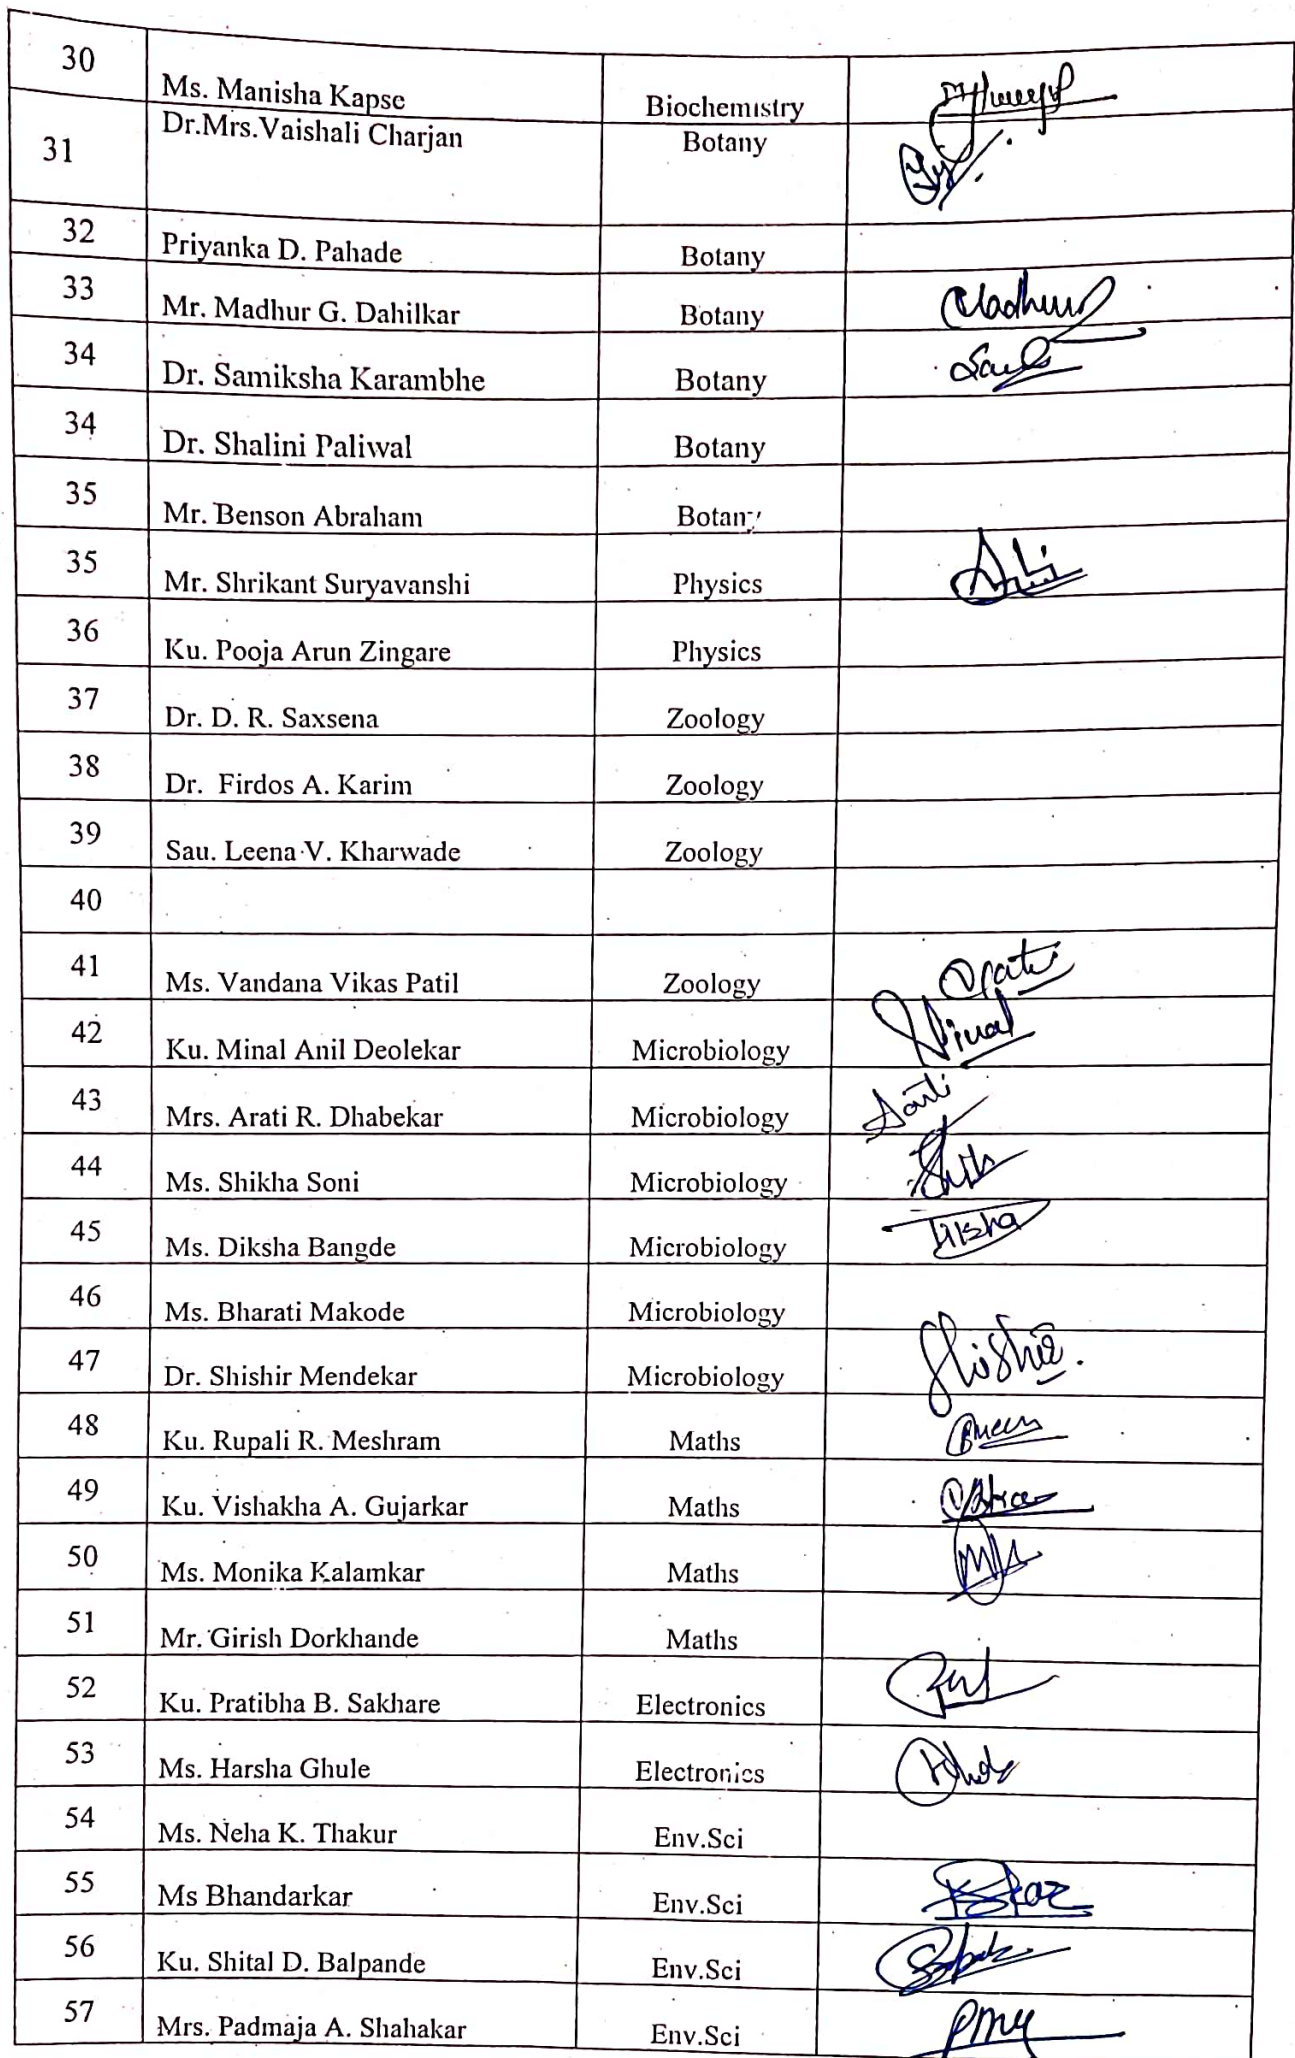 30 Ms. Manisha Kapse Biochemistry
31 Dr.Mrs.Vaishali Charjan Botany
32 Priyanka D. Pahade Botany
33 Mr. Madhur G. Dahilkar Botany Madhur
34 Dr. Samiksha Karambhe Botany
34 Dr. Shalini Paliwal Botany
35 Mr. Benson Abraham Botany
35 Mr. Shrikant Suryavanshi Physics
36 Ku. Pooja Arun Zingare Physics
37 Dr. D. R. Saxsena Zoology
38 Dr. Firdos A. Karim Zoology
39 Sau. Leena V. Kharwade Zoology
40
41 Ms. Vandana Vikas Patil Zoology
42 Ku. Minal Anil Deolekar Microbiology Minal
43 Mrs. Arati R. Dhabekar Microbiology
44 Ms. Shikha Soni Microbiology
45 Ms. Diksha Bangde Microbiology Diksha
46 Ms. Bharati Makode Microbiology
47 Dr. Shishir Mendekar Microbiology
48 Ku. Rupali R. Meshram Maths
49 Ku. Vishakha A. Gujarkar Maths
50 Ms. Monika Kalamkar Maths
51 Mr. Girish Dorkhande Maths
52 Ku. Pratibha B. Sakhare Electronics
53 Ms. Harsha Ghule Electronics
54 Ms. Neha K. Thakur Env.Sci
55 Ms Bhandarkar Env.Sci
56 Ku. Shital D. Balpande Env.Sci
57 Mrs. Padmaja A. Shahakar Env.Sci